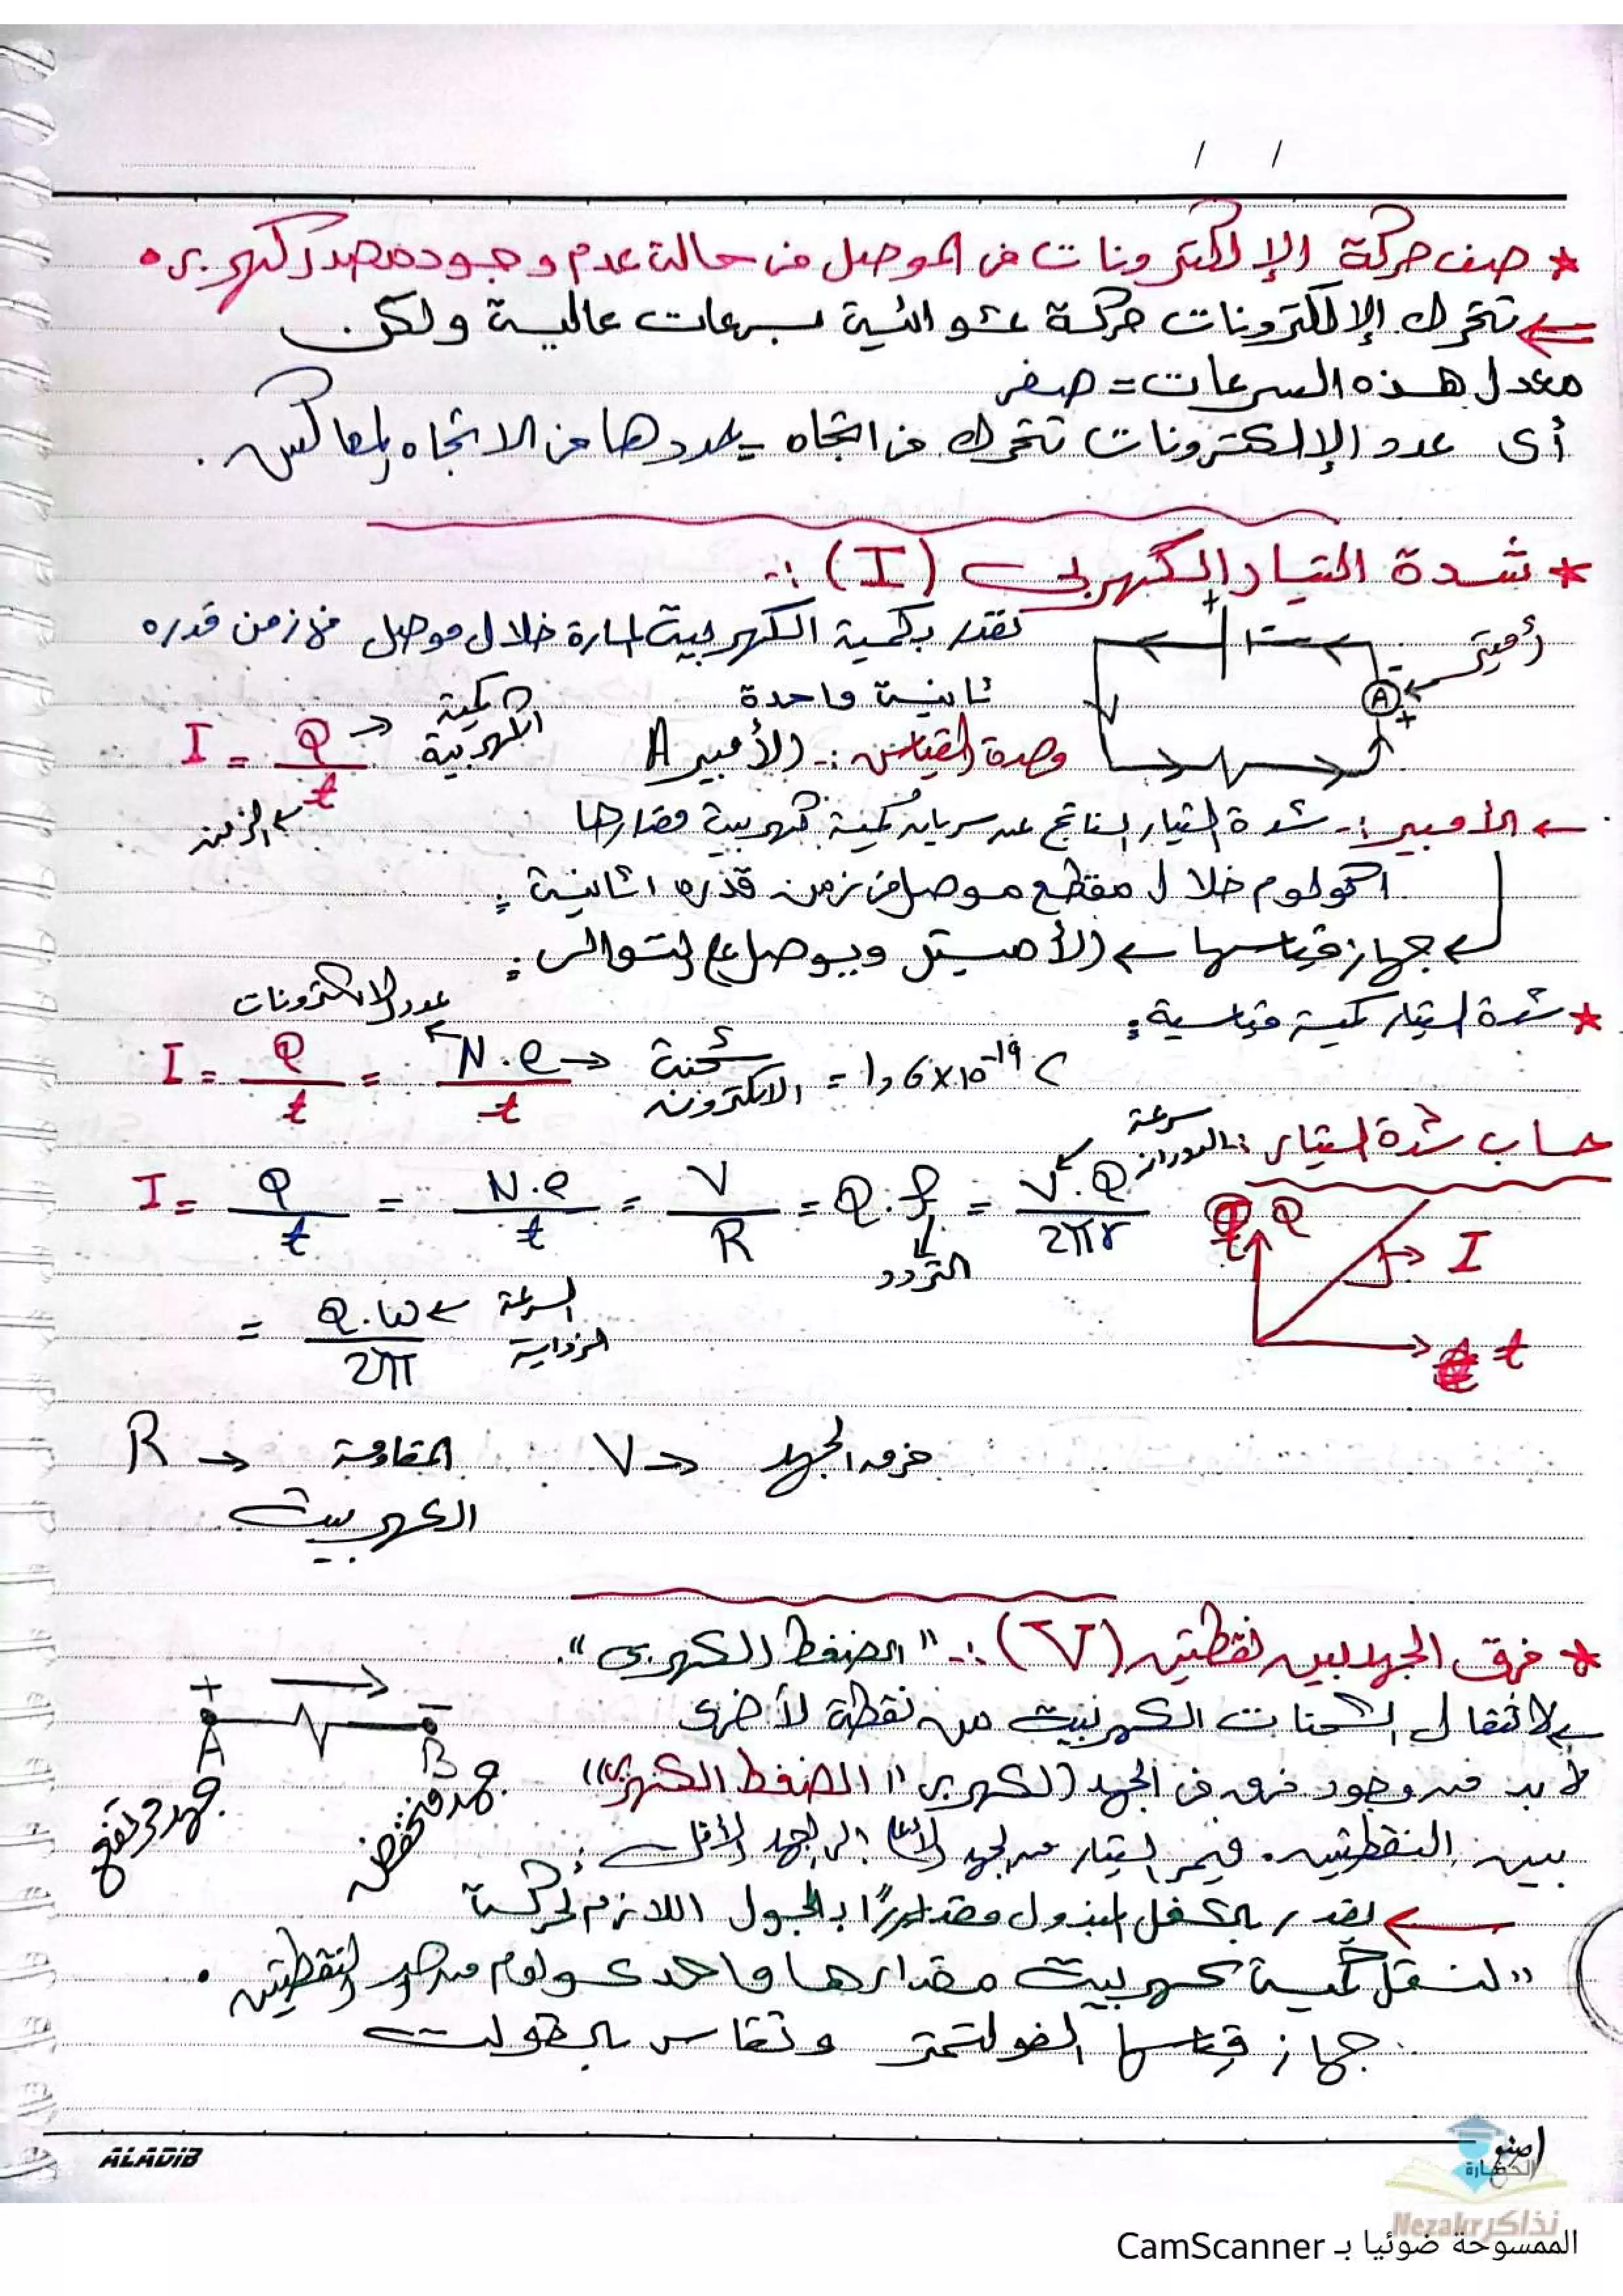 / /
* صف حركة الإلكترونات في الموصل في حالة عدم وجود مصدر كهربي .
تتحرك الإلكترونات حركة عشوائية بسرعات عالية ولكن
معدل هذه السرعات = صفر
أى عدد الإلكترونات تتحرك في اتجاه = عددها في الاتجاه المعاكس .
* شدة التيار الكهربى (I) :-
تقدر بكمية الكهربية المارة خلال موصل في زمن قدره
ثانية واحدة
أميتر
+ - A +
وحدة القياس :- الأمبير A
I = Q / t
كمية الكهربية
الزمن
← الأمبير :- شدة التيار الناتج عن سريان كمية كهربية مقدارها
1 كولوم خلال مقطع موصل في زمن قدره 1 ثانية
جهاز قياسها ← الأميتر ويوصل على التوالى
* شدة التيار كمية قياسية
عدد الإلكترونات
I = Q / t = N.e / t → شحنة الإلكترون = 1,6 x 10^-19 C
حساب شدة التيار :-
سرعة الدوران
I = Q / t = N.e / t = V / R = Q.f = V.Q / 2πr
التردد
= Q.ω / 2π
السرعة الزاوية
Q I t
R → المقاومة الكهربية
V → فرق الجهد
* فرق الجهد بين نقطتين (V) :- "الضغط الكهربى".
لانتقال الشحنات الكهربية من نقطة لأخرى
+ A - B
جهد مرتفع
جهد منخفض
لا بد من وجود فرق في الجهد الكهربى "الضغط الكهربى"
بين النقطتين . فيمر التيار من الجهد الأعلى إلى الجهد الأقل
← يقدر بالشغل المبذول مقدراً بالجول اللازم لحركة
"لنقل كمية كهربية مقدارها واحد كولوم من النقطتين .
جهاز قياسها الفولتمتر وتقاس بالفولت
ALADIB
الحضارة
نذاكر Nezakr
الممسوحة ضوئيا بـ CamScanner